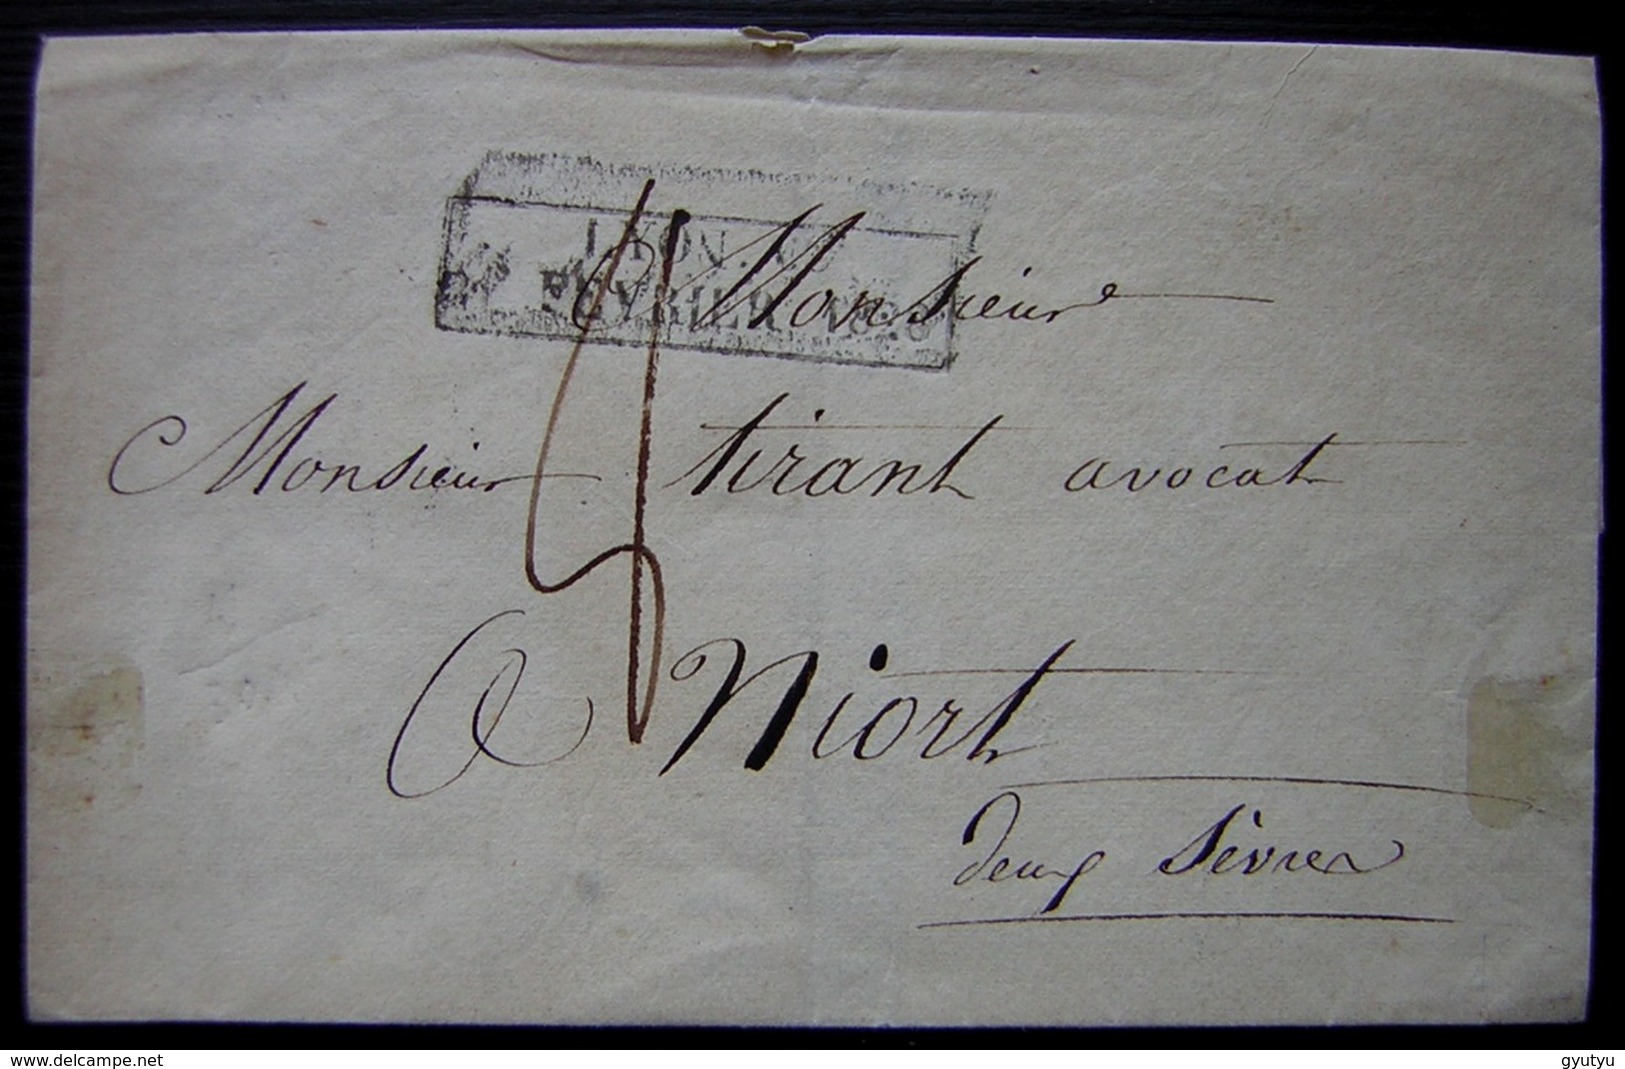 LYON.
FEVRIER
Monsieur
Monsieur tirant avocat
a Niort
deux Sèvres
delcampe.net
gyutyu